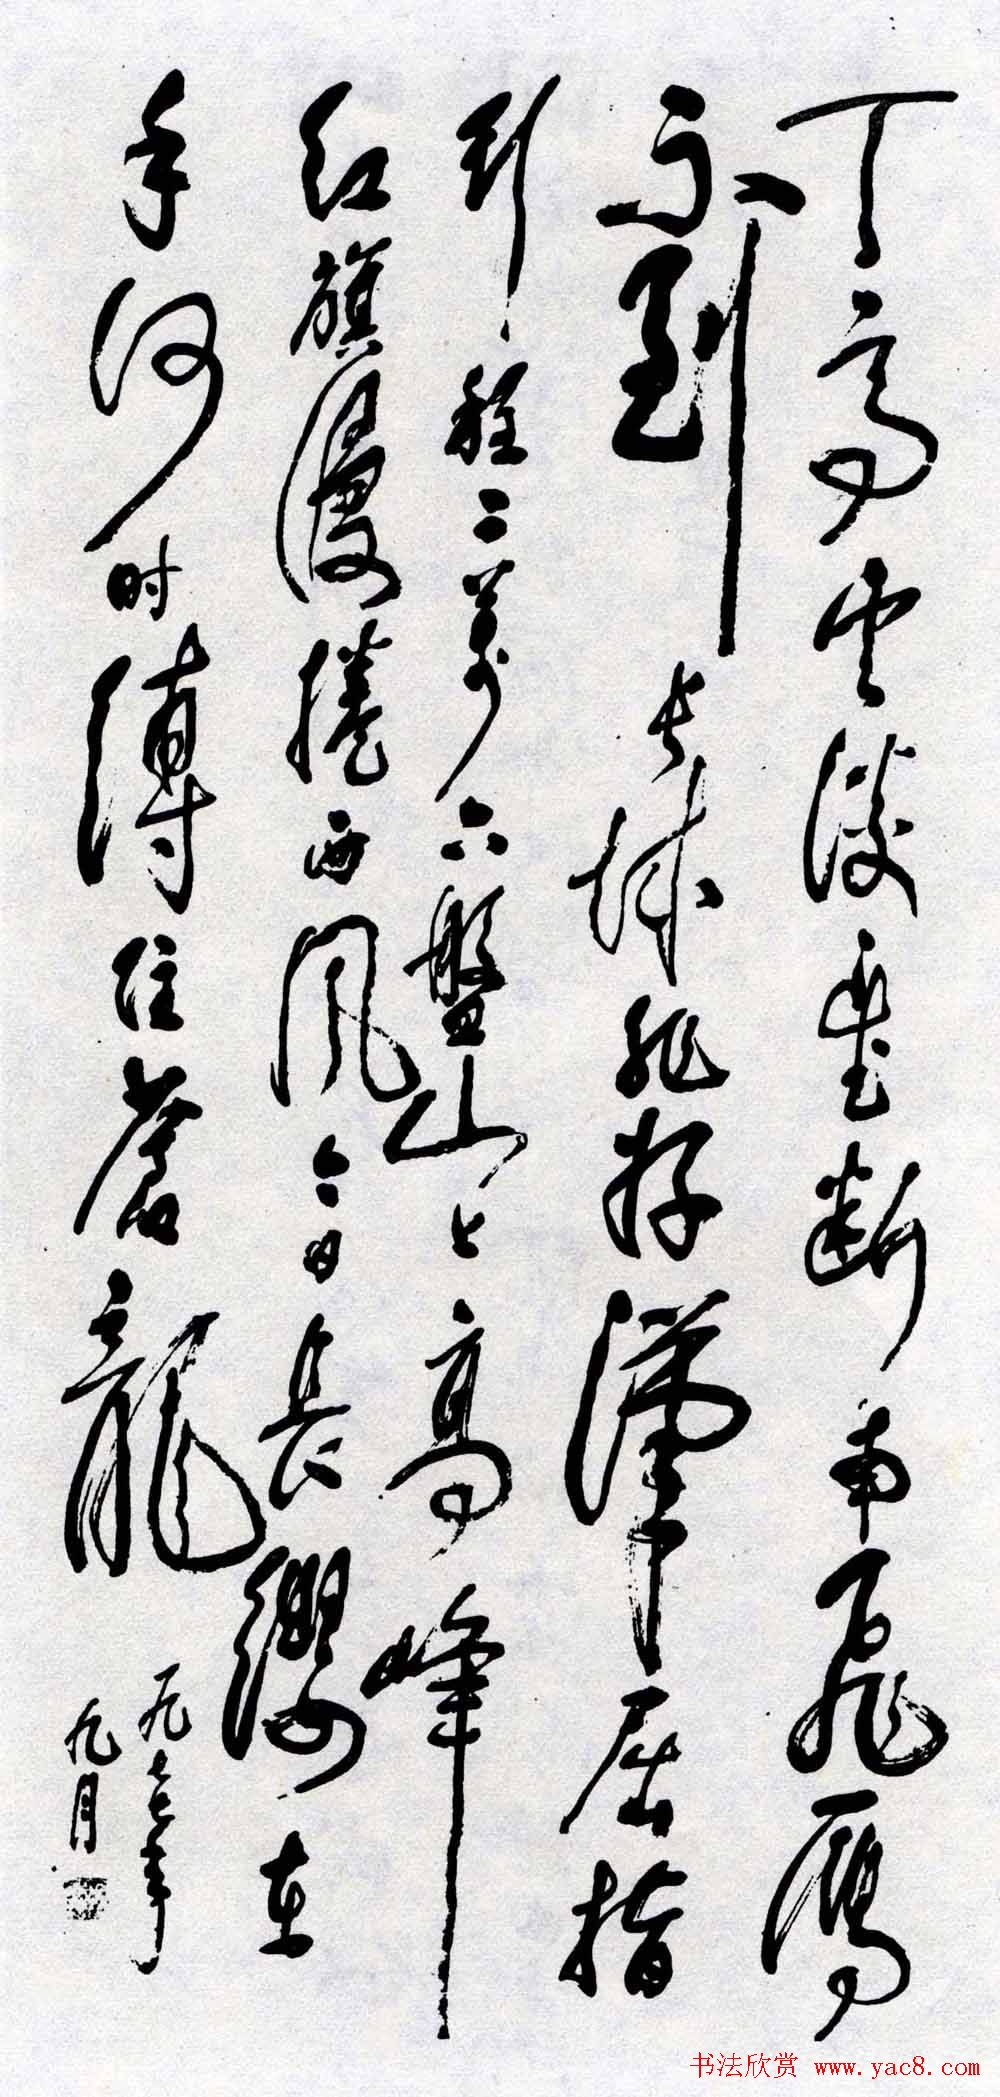 天高云淡望断南飛雁
不到长城非好漢屈指
行程二萬六盤山上高峰
红旗漫捲西風今日長纓在
手何时缚住蒼龍
一九七七年
九月
书法欣赏 www.yac8.com